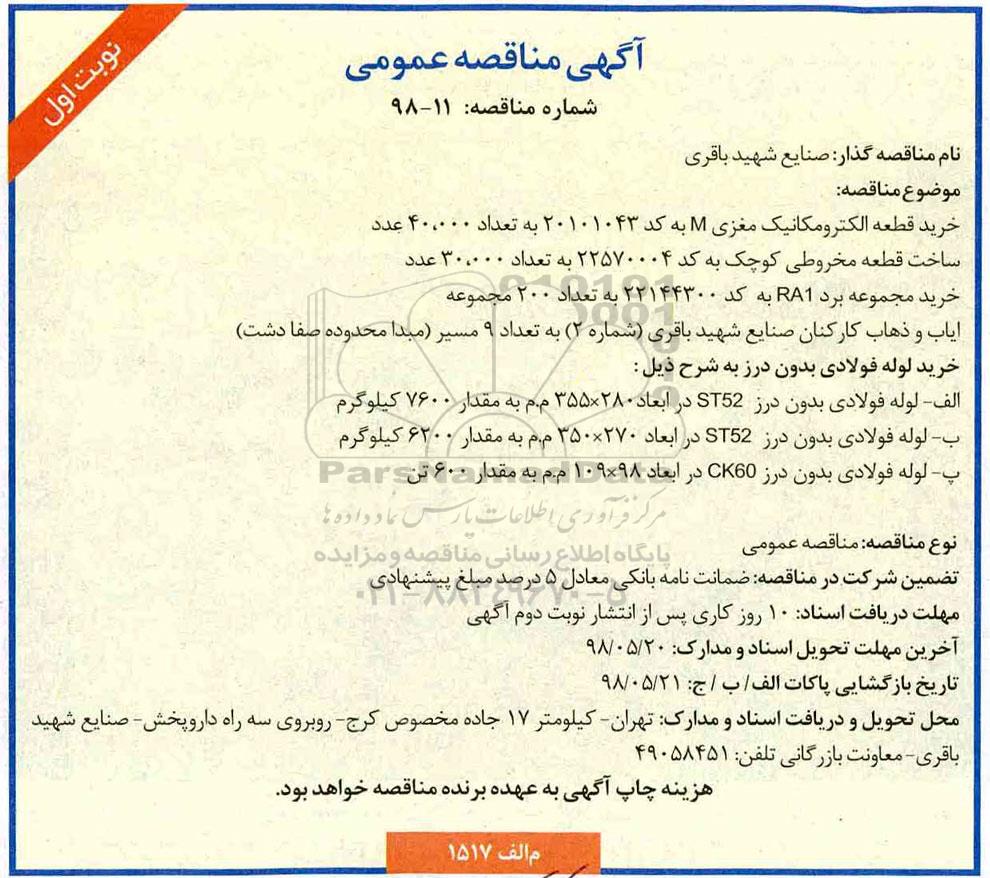 نوبت اول
آگهی مناقصه عمومی
شماره مناقصه: ۱۱-۹۸
نام مناقصه گذار: صنایع شهید باقری
موضوع مناقصه:
خرید قطعه الکترومکانیک مغزی M به کد ۲۰۱۰۱۰۴۳ به تعداد ۴۰،۰۰۰ عدد
ساخت قطعه مخروطی کوچک به کد ۲۲۵۷۰۰۰۴ به تعداد ۳۰،۰۰۰ عدد
خرید مجموعه برد RA1 به کد ۲۲۱۴۴۳۰۰ به تعداد ۲۰۰ مجموعه
ایاب و ذهاب کارکنان صنایع شهید باقری (شماره ۲) به تعداد ۹ مسیر (مبدا محدوده صفا دشت)
خرید لوله فولادی بدون درز به شرح ذیل:
الف- لوله فولادی بدون درز ST52 در ابعاد ۲۸۰×۳۵۵ م.م به مقدار ۷۶۰۰ کیلوگرم
ب- لوله فولادی بدون درز ST52 در ابعاد ۲۷۰×۳۵۰ م.م به مقدار ۶۲۰۰ کیلوگرم
پ- لوله فولادی بدون درز CK60 در ابعاد ۹۸×۱۰۹ م.م به مقدار ۶۰۰ تن
ParsNamadData
مرکز فرآوری اطلاعات پارس نماد داده ها
نوع مناقصه: مناقصه عمومی
پایگاه اطلاع رسانی مناقصه و مزایده
تضمین شرکت در مناقصه: ضمانت نامه بانکی معادل ۵ درصد مبلغ پیشنهادی
۰۲۱-۸۸۳۴۹۶۷۰-۵
مهلت دریافت اسناد: ۱۰ روز کاری پس از انتشار نوبت دوم آگهی
آخرین مهلت تحویل اسناد و مدارک: ۹۸/۰۵/۲۰
تاریخ بازگشایی پاکات الف/ ب / ج: ۹۸/۰۵/۲۱
محل تحویل و دریافت اسناد و مدارک: تهران- کیلومتر ۱۷ جاده مخصوص کرج- روبروی سه راه داروپخش- صنایع شهید
باقری- معاونت بازرگانی تلفن: ۴۹۰۵۸۴۵۱
هزینه چاپ آگهی به عهده برنده مناقصه خواهد بود.
م الف ۱۵۱۷